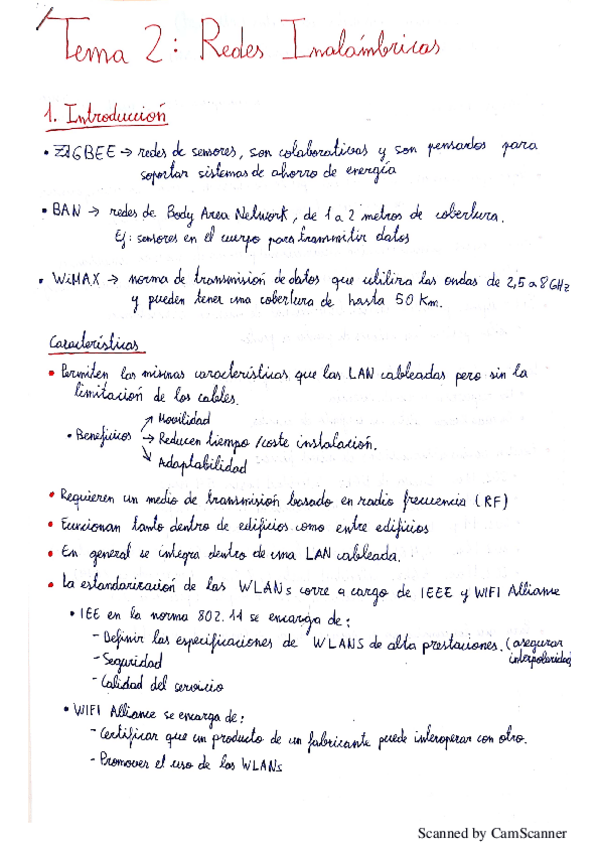 Tema 2: Redes Inalámbricas
1. Introducción
• ZIGBEE → redes de sensores, son colaborativas y son pensados para
soportar sistemas de ahorro de energía
• BAN → redes de Body Area Network, de 1 a 2 metros de cobertura.
Ej: sensores en el cuerpo para transmitir datos
• WiMAX → norma de transmisión de datos que utiliza las ondas de 2,5 a 8 GHz
y pueden tener una cobertura de hasta 50 Km.
Características
• Permiten las mismas características que las LAN cableadas pero sin la
limitación de los cables.
• Beneficios ↗ Movilidad
→ Reducen tiempo/coste instalación.
↘ Adaptabilidad
• Requieren un medio de transmisión basado en radio frecuencia (RF)
• Funcionan tanto dentro de edificios como entre edificios
• En general se integra dentro de una LAN cableada.
• La estandarización de las WLANs corre a cargo de IEEE y WIFI Alliance
• IEE en la norma 802.11 se encarga de:
- Definir las especificaciones de WLANS de alta prestaciones. (asegurar
interpolaridad)
- Seguridad
- Calidad del servicio
• WIFI Alliance se encarga de:
- Certificar que un producto de un fabricante puede interoperar con otro.
- Promover el uso de las WLANs
Scanned by CamScanner